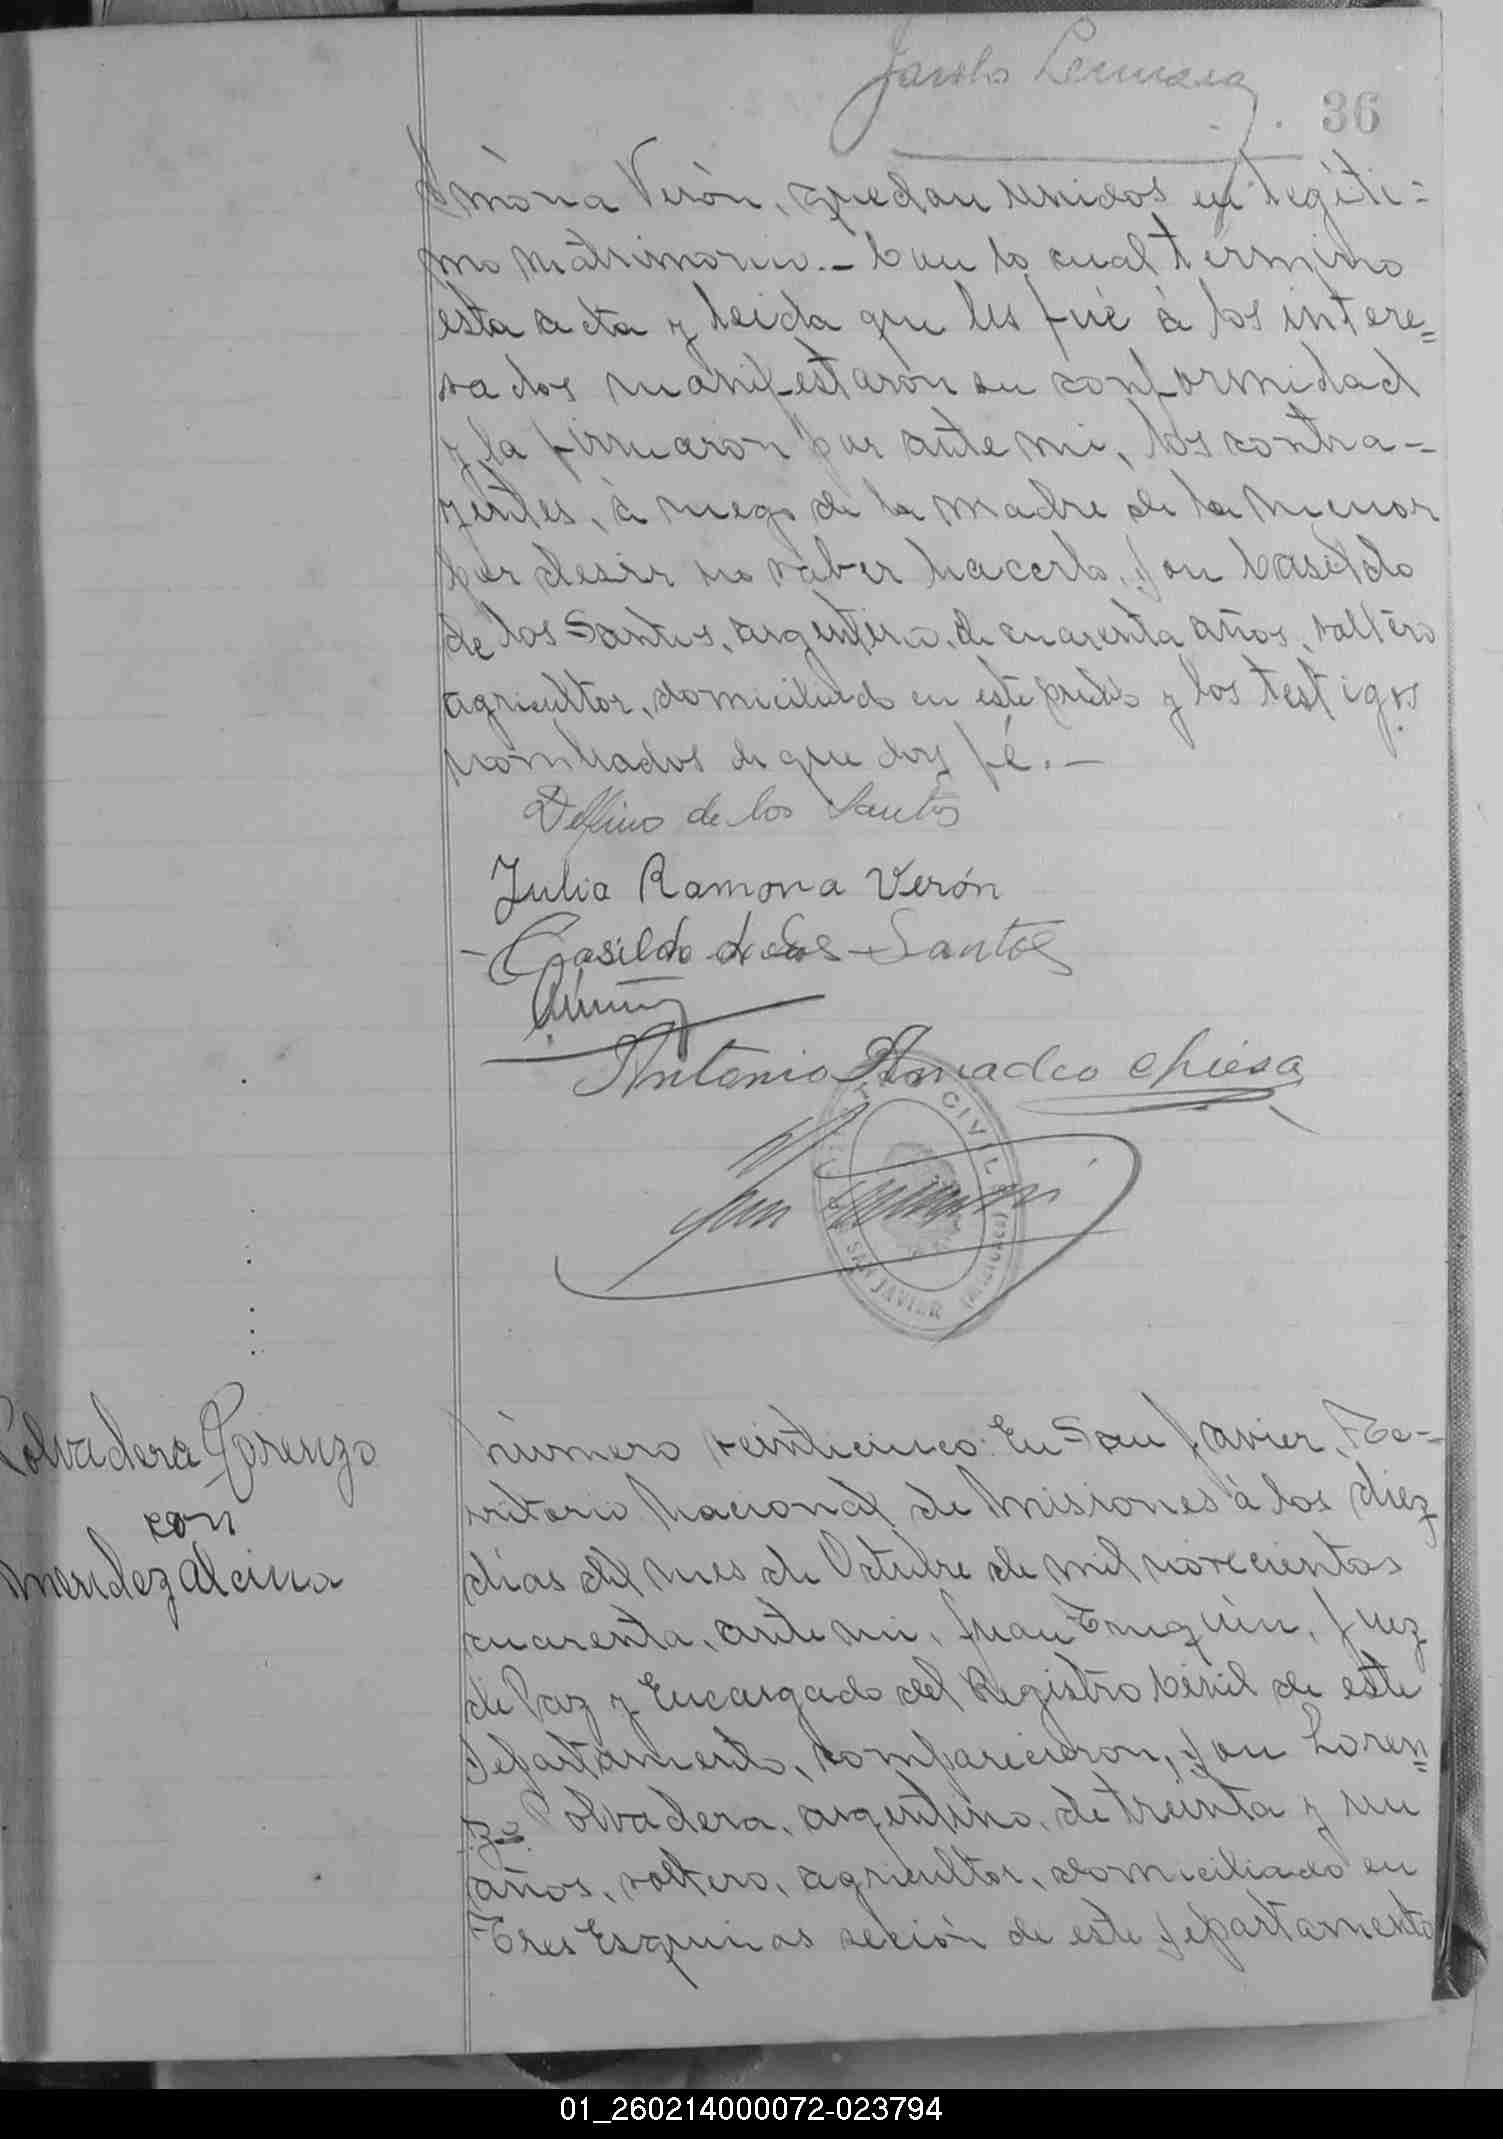 36
mona Verón, quedan unidos en legíti=
mo matrimonio.- Con lo cual termino
esta acta y leida que les fué á los intere=
sados manifestaron su conformidad
y la firmaron por ante mi, los contra-
yentes, á ruego de la madre de la menor
por desir no saber hacerlo, Don Casildo
de los Santos, argentino, de cuarenta años, soltero
agricultor, domiciliado en este pueblo y los testigos
nombrados de que doy fé.-
Delfino de los Santos
Julia Ramona Verón
Casildo de los Santos
Antonio Amadeo Chiesa
CIVIL
SAN JAVIER (MISIONES)
Polvadera Lorenzo
con
Mendez Alcina
Número veinticinco: En San Javier, Te-
rritorio Nacional de Misiones á los diez
días del mes de Octubre de mil novecientos
cuarenta, ante mi, Juan Truquin, Juez
de Paz y Encargado del Registro Civil de este
Departamento, comparecieron, Don Loren=
zo Polvadera, argentino, de treinta y un
años, soltero, agricultor, domiciliado en
Tres Esquinas seción de este Departamento
01_260214000072-023794